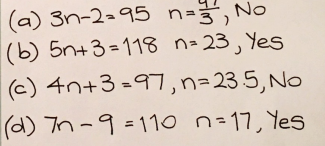 (a) 3n-2=95 n=97/3, No
(b) 5n+3=118 n=23, Yes
(c) 4n+3=97, n=23.5, No
(d) 7n-9=110 n=17, Yes